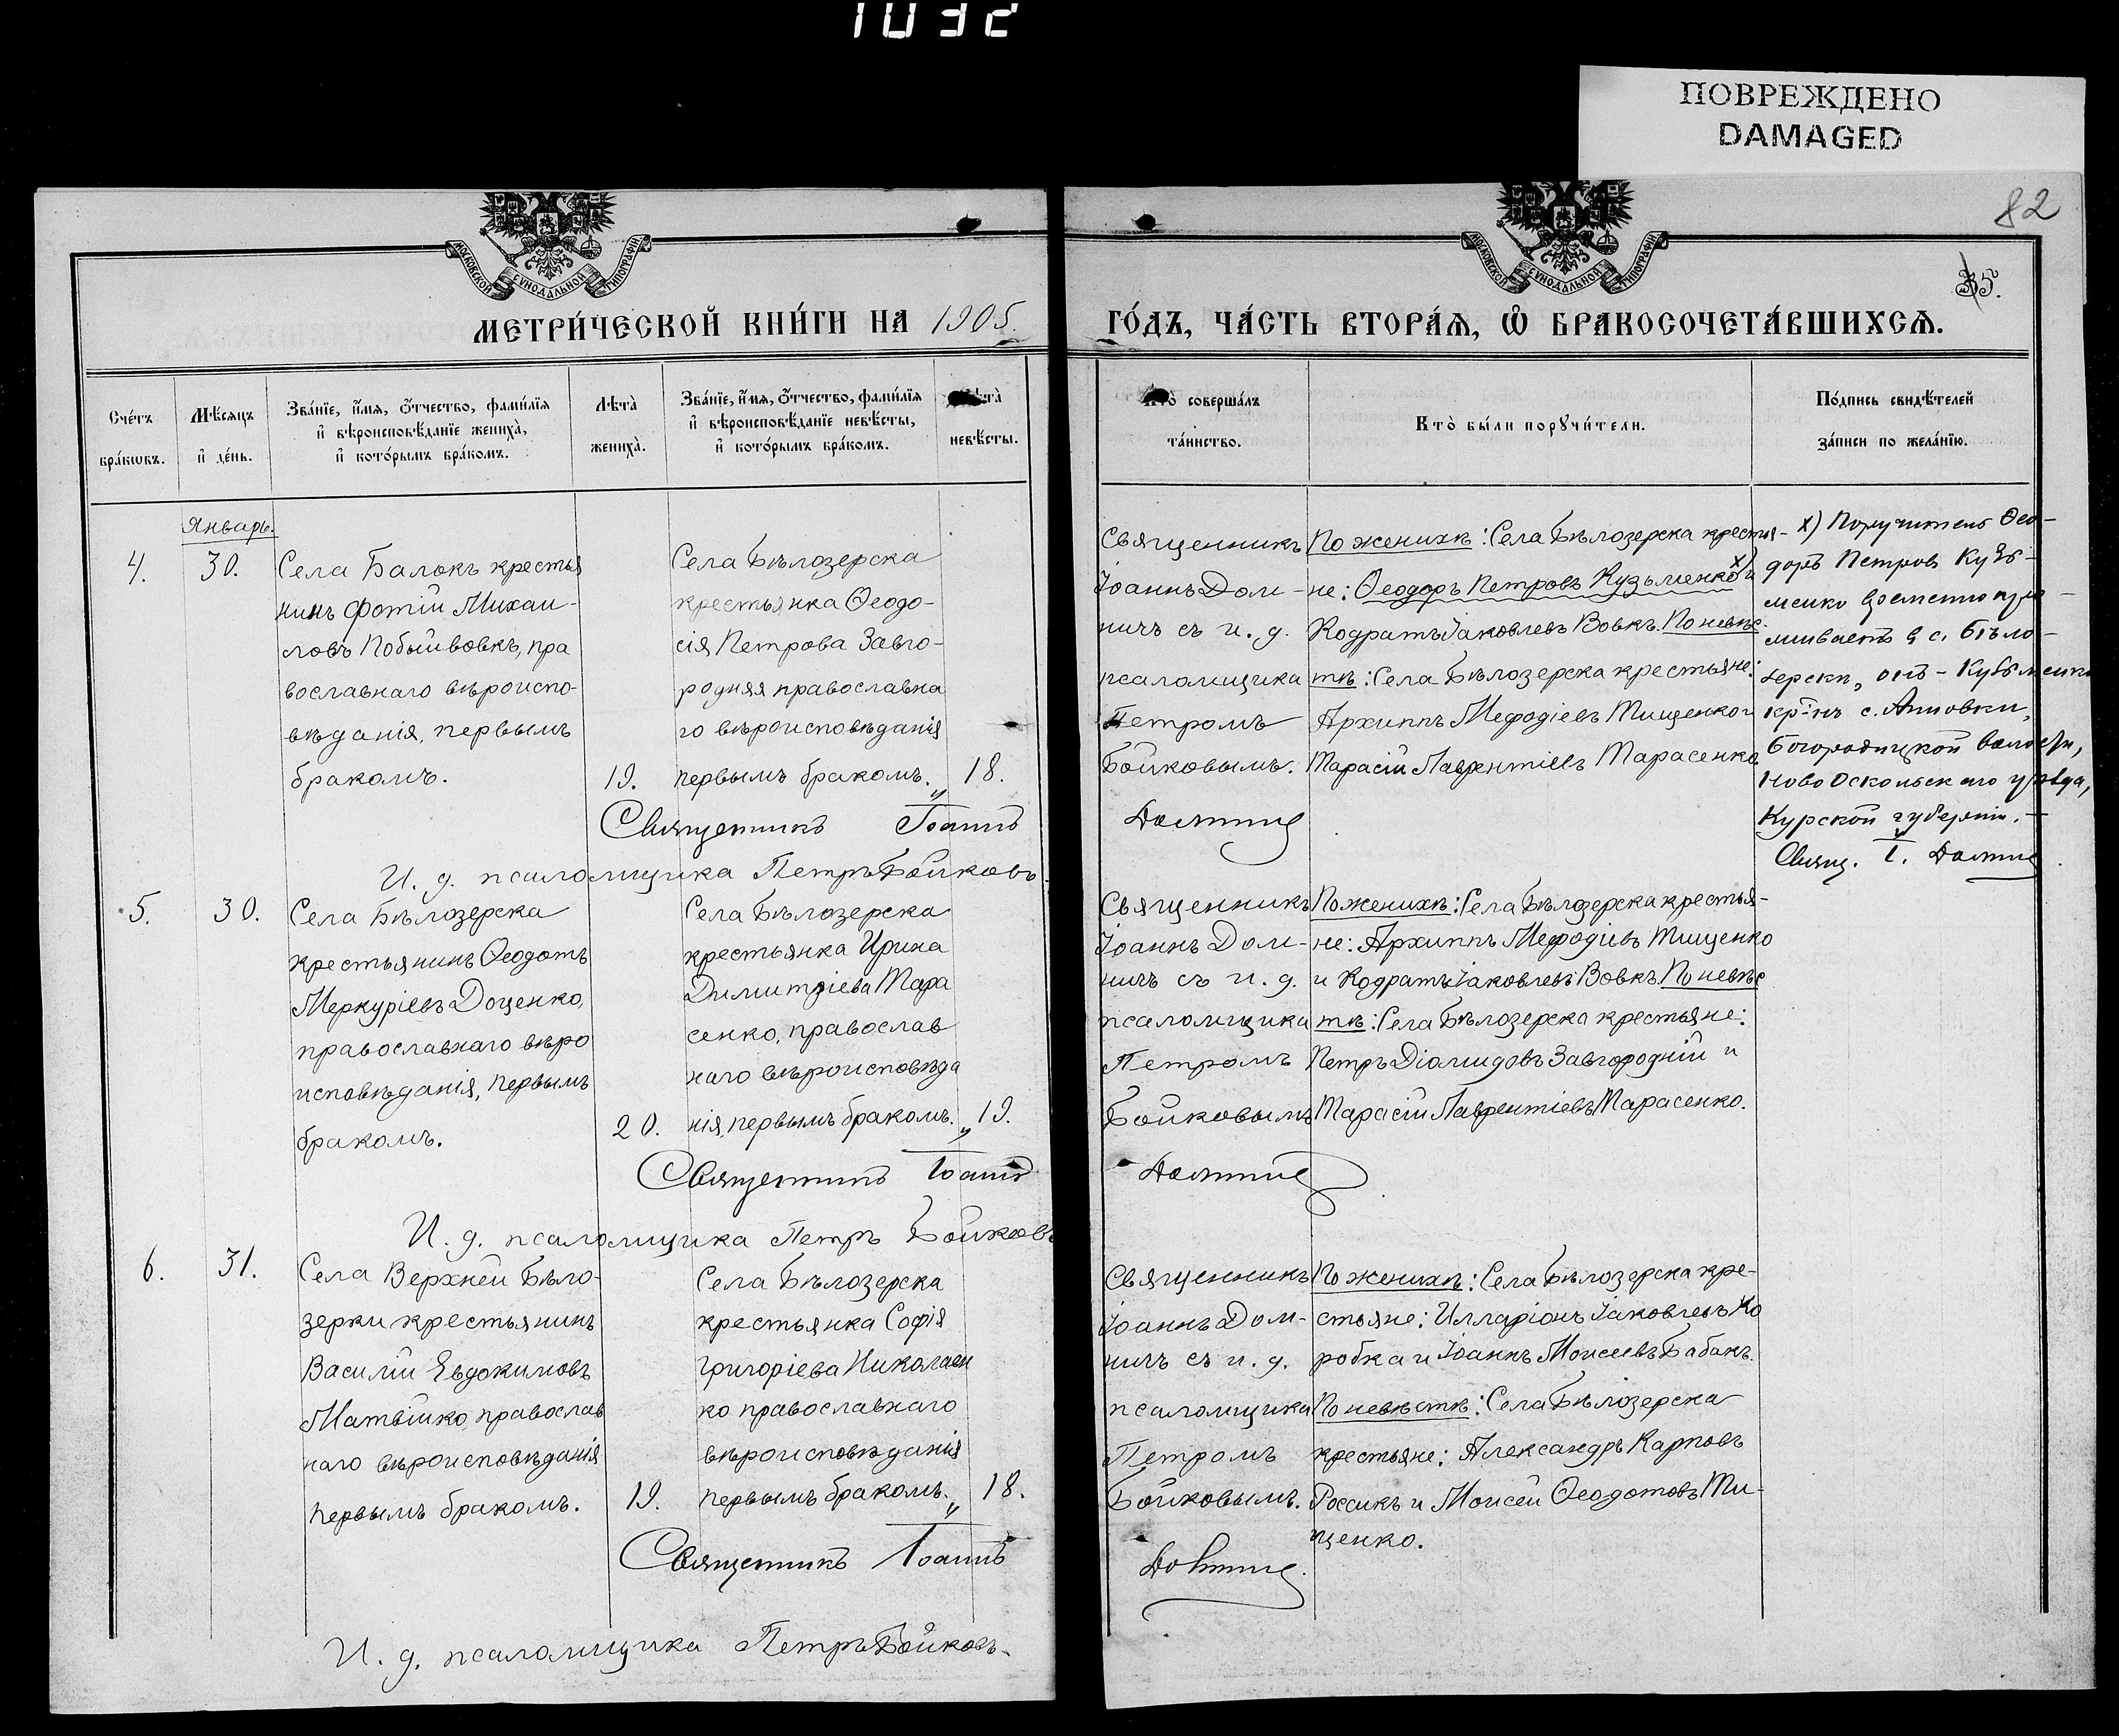 1032
ПОВРЕЖДЕНО
DAMAGED
82
35.
МОСКОВСКОЙ СѴНОДАЛЬНОЙ ТИПОГРАФІИ
МОСКОВСКОЙ СѴНОДАЛЬНОЙ ТИПОГРАФІИ
МЕТРИ́ЧЕСКОЙ КНИ́ГИ НА 1905.
ГО́ДЪ, ЧА́СТЬ ВТОРА́Я, Ѽ БРАКОСОЧЕТА́ВШИХСЯ.
Сче́тъ
бра́кѡвъ.
Мѣ́сяцъ
и҆ де́нь.
Зва́нїе, и҆́мя, ѻ҆́тчество, фами́лїя
и҆ вѣроисповѣ́данїе жениха̀,
и҆ кото́рымъ бра́комъ.
Лѣта̀
жениха̀.
Зва́нїе, и҆́мя, ѻ҆́тчество, фами́лїя
и҆ вѣроисповѣ́данїе невѣ́сты,
и҆ кото́рымъ бра́комъ.
Лѣта̀
невѣ́сты.
Кто̀ соверша́лъ
та́инство.
Кто̀ бы́ли порꙋчи́тели.
По́дпись свидѣ́телей
за́писи по жела́нїю.
Январь.
4.
30.
Села Балокъ крестья
нинъ Фотій Михаи-
ловъ Побыйвовкъ, пра
вославнаго вѣроиспо-
вѣданія, первымъ
бракомъ.
19.
Села Бѣлозерска
крестьянка Ѳеодо-
сія Петрова Завго-
родняя православна
го вѣроисповѣданія
первымъ бракомъ.„
18.
Священникъ Іоаннъ
И. д. псаломщика Петръ Бойковъ.
Священникъ
Іоаннъ Дом-
ничъ съ и. д.
псаломщика
Петромъ
Бойковымъ.
Домничъ
По женихѣ: Села Бѣлозерска крестья-
не: Ѳеодоръ Петровъ Кузьменко х) и
Кодратъ Іаковлевъ Вовкъ. По невѣс-
тѣ: Села Бѣлозерска крестьяне:
Архиппъ Меѳодіевъ Тищенко и
Тарасій Лаврентіевъ Тарасенко
х) Поручитель Ѳео-
доръ Петровъ Кузь-
менко временно про-
живаетъ в с. Бѣло-
зерскѣ, онъ - Кузьменко
кр-нъ с. Анновки,
Богородицкой волости,
Ново Оскольскаго уѣзда,
Курской губерніи. —
Свящ. І. Домничъ.
5.
30.
Села Бѣлозерска
крестьянинъ Ѳеодотъ
Меркуріевъ Доценко,
православнаго вѣро
исповѣданія, первымъ
бракомъ.
20.
Села Бѣлозерска
крестьянка Ирина
Димитріева Тара
сенко, православ
наго вѣроисповѣда
нія, первымъ бракомъ.„
19.
Священникъ Іоаннъ
И. д. псаломщика Петръ Бойковъ
Священникъ
Іоаннъ Дом-
ничъ съ и. д.
псаломщика
Петромъ
Бойковымъ
Домничъ
По женихѣ: Села Бѣлозерска крестья-
не: Архиппъ Меѳодіевъ Тищенко
и Кодратъ Іаковлевъ Вовкъ. По невѣс
тѣ: Села Бѣлозерска крестьяне:
Петръ Діомидовъ Завгородній и
Тарасій Лаврентіевъ Тарасенко.
6.
31.
Села Верхней Бѣло-
зерки крестьянинъ
Василій Евдокимовъ
Матвійко, православ
наго вѣроисповѣданія
первымъ бракомъ.
19.
Села Бѣлозерска
крестьянка Софія
Григоріева Николаен
ко православнаго
вѣроисповѣданія
первымъ бракомъ.„
18.
Священникъ Іоаннъ
И. д. псаломщика Петръ Бойковъ.
Священникъ
Іоаннъ Дом-
ничъ съ и. д.
псаломщика
Петромъ
Бойковымъ.
Домничъ.
По женихѣ: Села Бѣлозерска кре-
стьяне: Илларіонъ Іаковлевъ Ко
робка и Іоаннъ Моисеевъ Бабакъ.
По невѣстѣ: Села Бѣлозерска
крестьяне: Александръ Карповъ
Россикъ и Моисей Ѳеодотовъ Ти-
щенко.